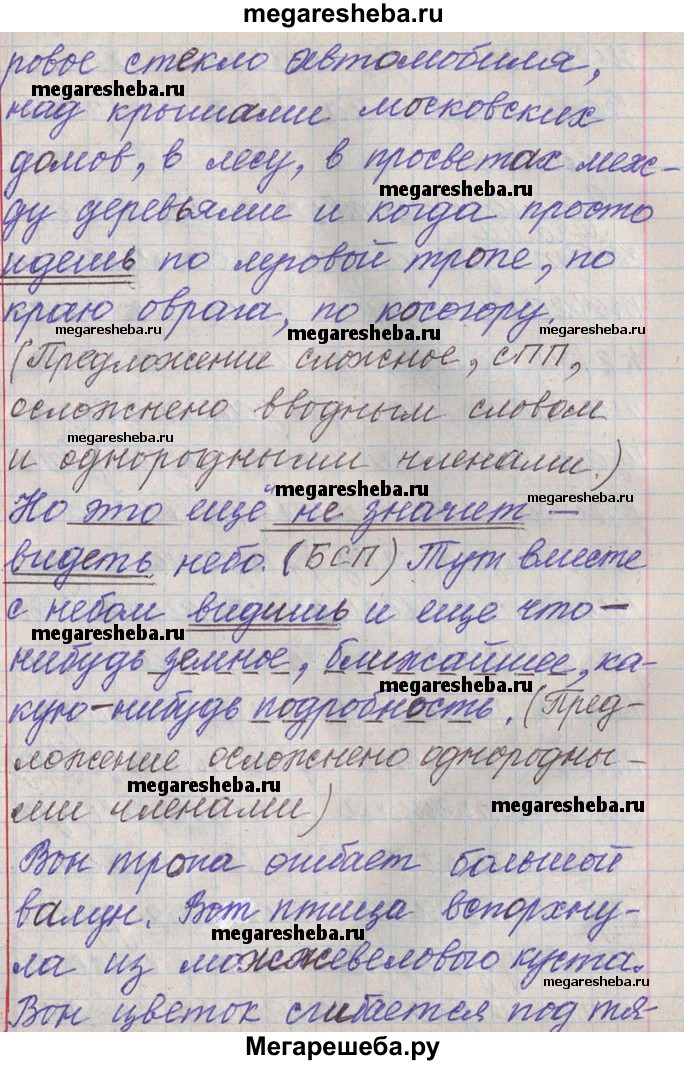 megaresheba.ru
ровое стекло автомобиля,
megaresheba.ru megaresheba.ru
над крышами московских
домов, в лесу, в просветах меж-
megaresheba.ru
ду деревьями и когда просто
идешь по луговой тропе, по
краю оврага, по косогору.
megaresheba.ru megaresheba.ru megaresheba.ru
(Предложение сложное, СПП,
осложнено вводным словом
megaresheba.ru
и однородными членами.)
megaresheba.ru megaresheba.ru
Но это еще не значит –
видеть небо. (БСП) Тут вместе
с небом видишь и еще что-
megaresheba.ru
нибудь земное, ближайшее, ка-
megaresheba.ru
кую-нибудь подробность. (Пред-
ложение осложнено однородны-
megaresheba.ru
ми членами)
megaresheba.ru
Вон тропа огибает большой
валун. Вот птица вспорхну-
megaresheba.ru
ла из можжевелового куста.
megaresheba.ru
Вон цветок сгибается под тя-
megaresheba.ru
Мегарешеба.ру